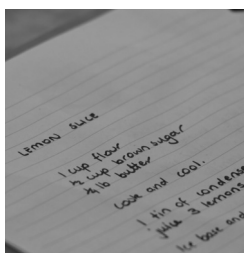 LEMON SLICE
1 cup flour
1/2 cup brown sugar
1/4 lb butter
Cook and cool.
1 tin of condense
juice 3 lemons
Ice base and